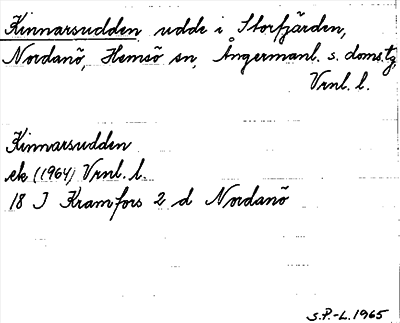 Kinnarsudden udde i Storfjärden,
Nordanö, Hemsö sn, Ångermanl. s. doms.tg,
Vrnl. l.
Kinnarsudden
ek (1964) Vrnl. l.
18 J Kramfors 2 d Nordanö
S.P.-L. 1965